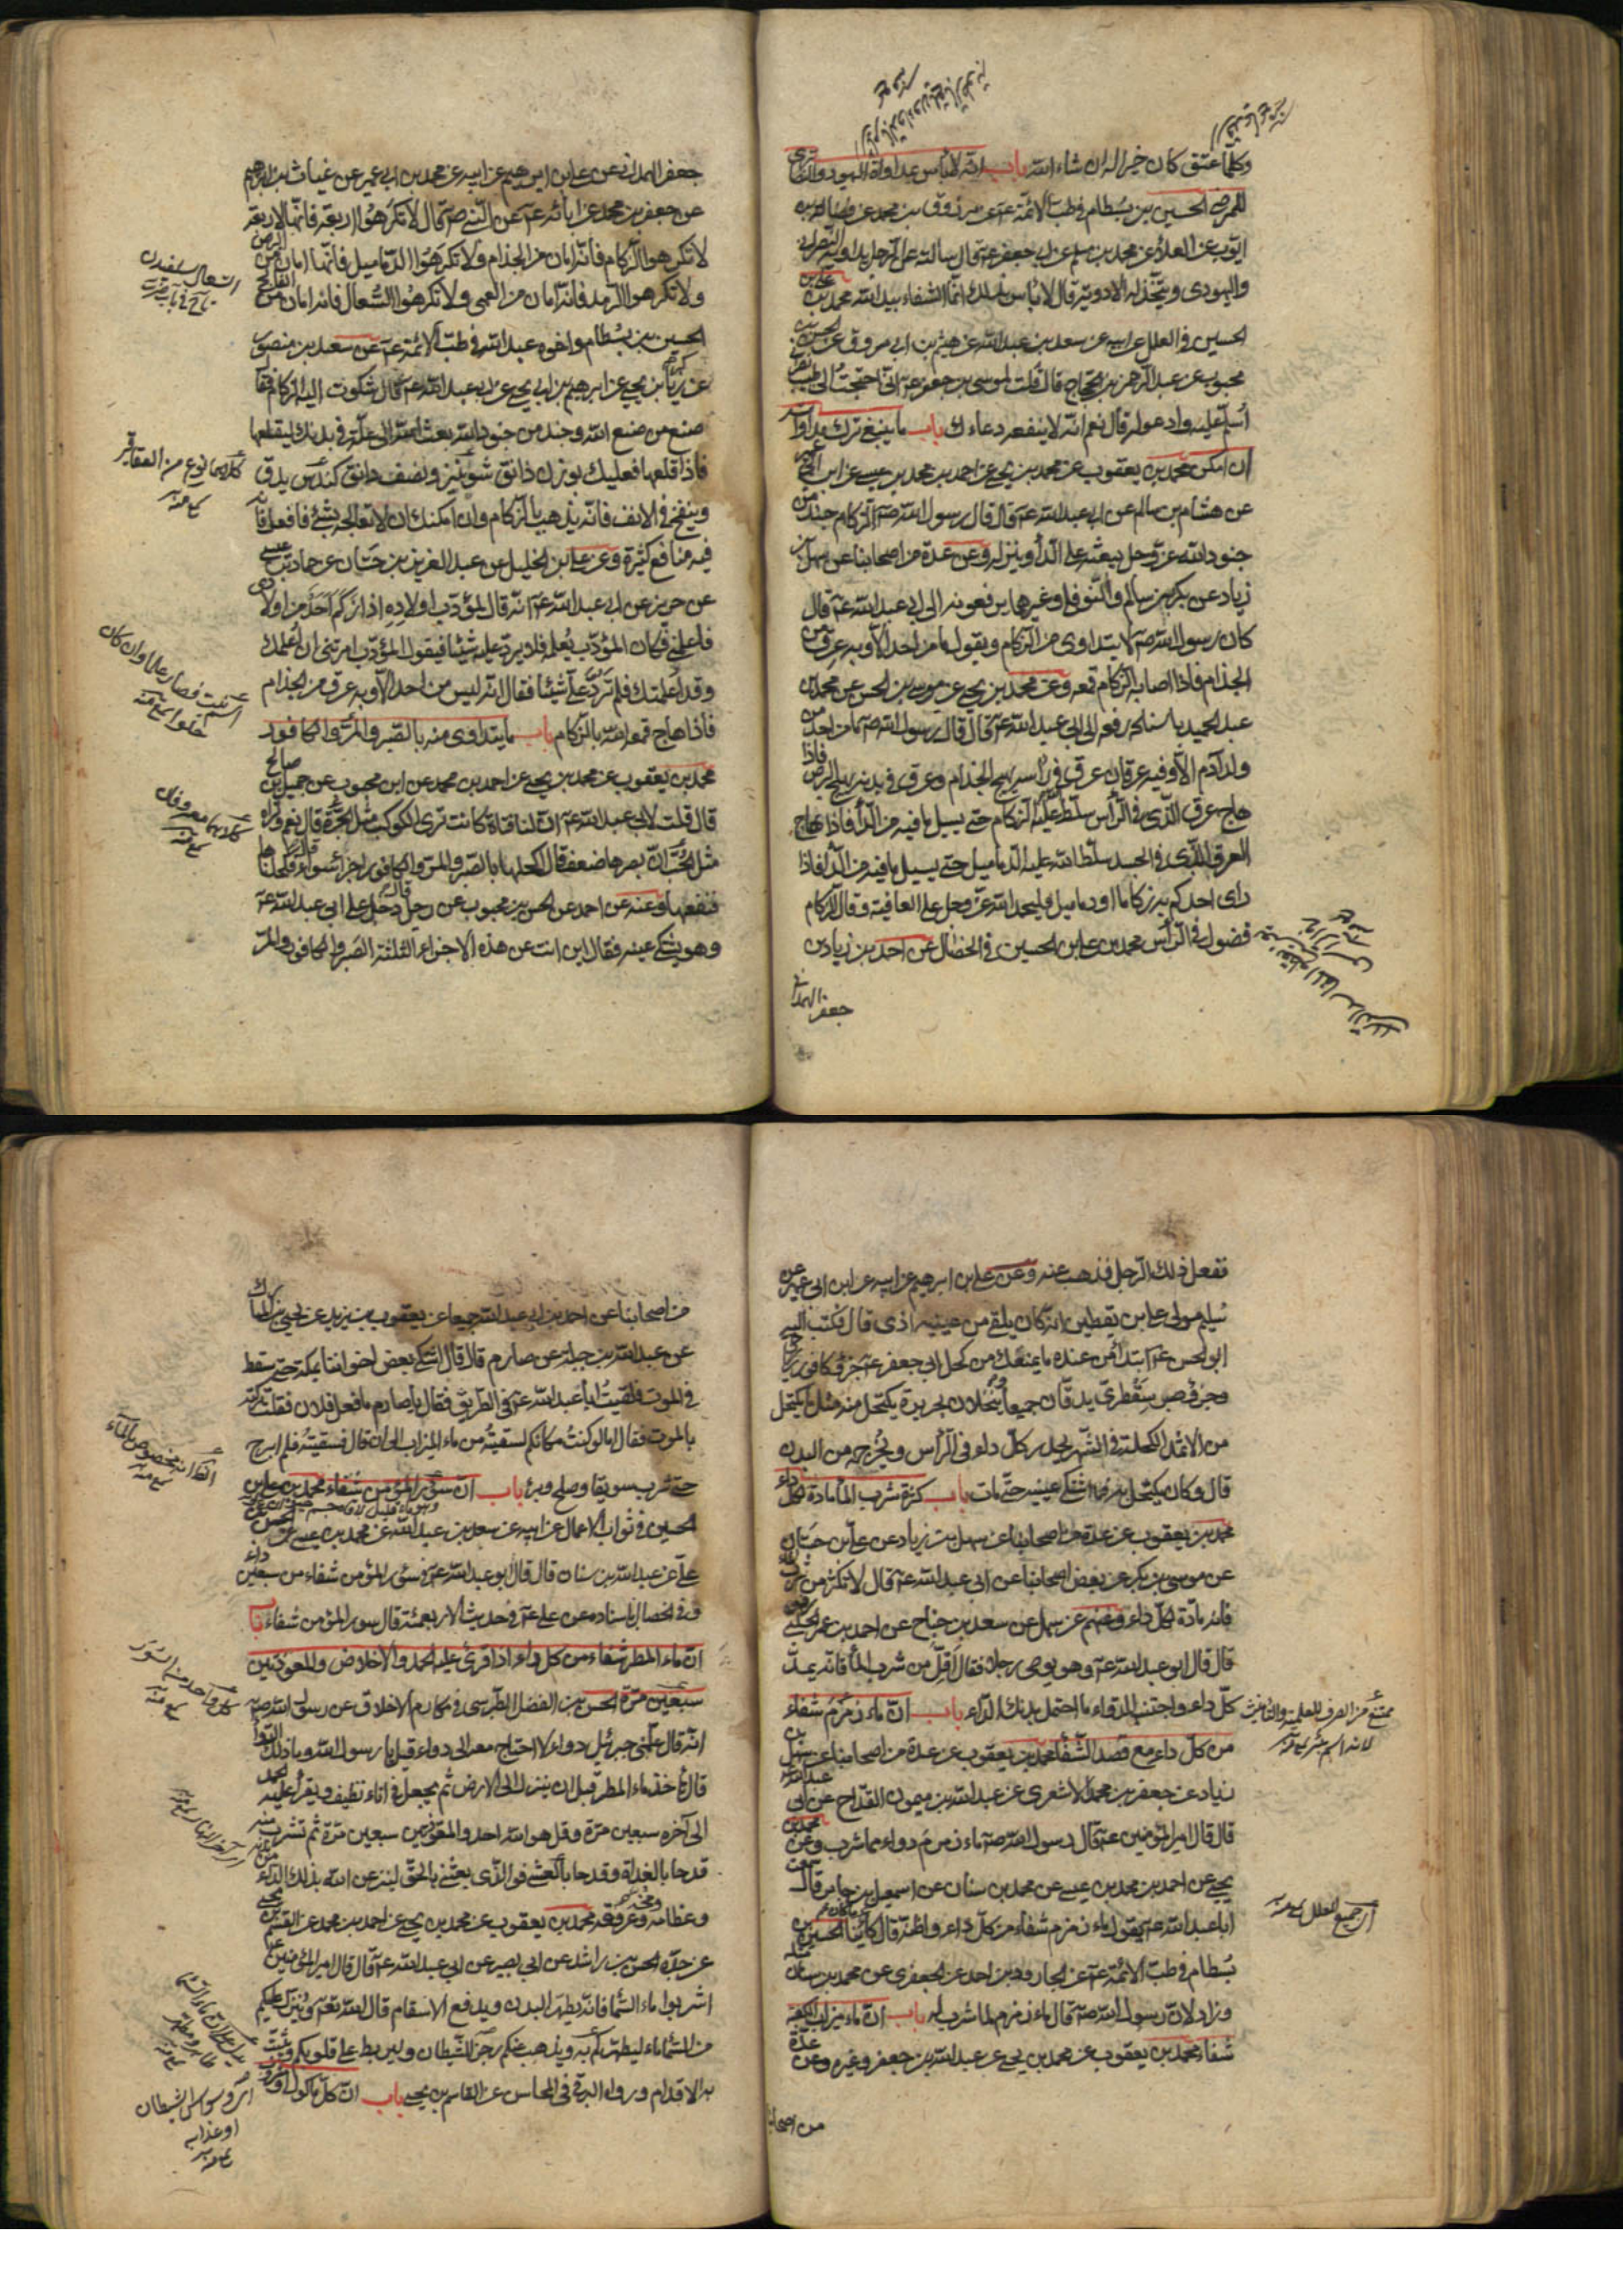 وكلما عتق كان خيرا له ان شاء الله باب انه لا بأس بمداواة اليهودي والنصراني
للمرض الحسين بن بسطام في طب الائمة عـ عن مرزوق بن محمد عن فضالة بن
ايوب عن العلاء عن محمد بن مسلم عن ابي جعفر عـ قال سألته عن الرجل يداويه النصراني
واليهودي ويتخذ له الادوية قال لا بأس بذلك انما الشفاء بيد الله محمد بن علي بن
الحسين في العلل عن ابيه عن سعد بن عبد الله عن هيثم بن ابي مسروق عن الحسن بن
محبوب عن عبد الرحمن بن حجاج قال قلت لموسى بن جعفر عـ اني احتجت الى طبيب نصراني
اسلم عليه وادعو له قال نعم انه لا ينفعه دعاءك باب ما ينبغي ترك مداواته
ان امكن محمد بن يعقوب عن محمد بن يحيى عن احمد بن محمد بن عيسى عن ابن ابي عمير
عن هشام بن سالم عن ابي عبد الله عـ قال قال رسول الله صـ الزكام جند من
جنود الله عز وجل يبعثه على الداء وينزله وعن عدة من اصحابنا عن سهل بن
زياد عن بكر بن سالم والنوفلي وغيرهما يرفعونه الى ابي عبد الله عـ قال
كان رسول الله صـ لا يتداوى من الزكام ويقول ما من احد الا وبه عرق من
الجذام فاذا اصابه الزكام قمعه وعن محمد بن يحيى عن موسى بن الحسن عن محمد بن
عبد الحميد باسناده رفعه الى ابي عبد الله عـ قال قال رسول الله صـ ما من احد من
ولد آدم الا وفيه عرقان عرق في رأسه يهيج الجذام وعرق في بدنه يهيج البرص فاذا
هاج عرق الذي في الرأس سلط عليه الزكام حتى يسيل ما فيه من الداء فاذا هاج
العرق الذي في الجسد سلط الله عليه الدماميل حتى يسيل ما فيه من الداء فاذا
راى احدكم به زكاما او دماميل فليحمد الله عز وجل على العافية وقال الزكام
فضول في الرأس محمد بن علي بن الحسين في الخصال عن احمد بن زياد بن
جعفر الهمداني
جعفر الهمداني عن علي بن ابراهيم عن ابيه عن محمد بن ابي عمير عن غياث بن ابراهيم
عن جعفر بن محمد عن ابائه عـ عن النبي صـ قال لا تكرهوا اربعة فانها لاربعة
لا تكرهوا الزكام فانه امان من الجذام ولا تكرهوا الدماميل فانها امان من البرص
ولا تكرهوا الرمد فانه امان من العمى ولا تكرهوا السعال فانه امان من الفالج
الحسين بن بسطام واخوه عبد الله في طب الائمة عـ عن سعد بن منصور
عن زكريا بن يحيى عن ابرهيم بن ابي يحيى عن ابي عبد الله عـ قال شكوت اليه الزكام فقال
صنع من صنع الله وجند من جنود الله بعثه الله الى علة في بدنك ليقلعها
فاذا قلعها فعليك بوزن دانق شونيز ونصف دانق كندس يدق
وينفخ في الانف فانه يذهب بالزكام وان امكنك ان لا تعالجه بشئ فافعل فان
فيه منافع كثيرة وعن علي بن الخليل عن عبد العزيز بن حسان عن حماد بن عيسى
عن حريز عن ابي عبد الله عـ انه قال لمؤدب اولاده اذا زكم احد من اولادي
فاعلمني فكان المؤدب يعلمه فلا يرد عليه شيئا فيقول المؤدب امرتني ان اعلمك
وقد اعلمتك فلم ترد علي شيئا فقال انه ليس من احد الا وبه عرق من الجذام
فاذا هاج قمعه الله بالزكام باب ما يتداوى منه بالصبر والمر والكافور
محمد بن يعقوب عن محمد بن يحيى عن احمد بن محمد عن ابن محبوب عن جميل بن صالح
قال قلت لابي عبد الله عـ ان لنا فتاة كانت ترى الكوكب مثل الجرة قال نعم وتراه
مثل الحب ان بصرها ضعف فقال اكحلها بالصبر والمر والكافور اجزاء سواء فكحلناها
فنفعها وعنه عن احمد عن الحسن بن محبوب عن رجل قال دخل على ابي عبد الله عـ
وهو يشتكي عينيه فقال اين انت عن هذه الاجزاء الثلثة الصبر والكافور والمر
كلاهما نوع من العقاقير
كلاهما معروفان
ففعل ذلك الرجل فذهب عنه وعن علي بن ابرهيم عن ابيه عن ابن ابي عمير عن
سليم مولى علي بن يقطين انه كان يلقى من عينيه اذى قال فكتب اليه
ابو الحسن عـ ابتداء من عنده ما يمنعك من كحل ابي جعفر عـ جزء كافور رباحي
وجزء صبر سقطري يدقان جميعا وينخلان بحريرة يكتحل منه مثل ما يكتحل
من الاثمد الكحلة في الشهر تحدر كل داء في الرأس وتخرجه من البدن
قال وكان يكتحل به فما اشتكى عينيه حتى مات باب كثرة شرب الماء مادة لكل داء
محمد بن يعقوب عن عدة من اصحابنا عن سهل بن زياد عن علي بن حسان
عن موسى بن بكر عن بعض اصحابنا عن ابي عبد الله عـ قال لا تكثر من شرب الماء
فانه مادة لكل داء وعنهم عن سهل عن سعد بن جناح عن احمد بن عمر الحلبي رفعه
قال قال ابو عبد الله عـ وهو يوصي رجلا فقال اقل من شرب الماء فانه يمد
كل داء واجتنب الدواء ما احتمل بدنك الداء باب ان ماء زمزم شفاء
من كل داء مع قصد الشفاء محمد بن يعقوب عن عدة من اصحابنا عن سهل بن
زياد عن جعفر بن محمد الاشعري عن عبد الله بن ميمون القداح عن ابي عبد الله
قال قال امير المؤمنين عـ قال رسول الله صـ ماء زمزم دواء مما شرب وعن محمد بن
يحيى عن احمد بن محمد بن عيسى عن محمد بن سنان عن اسمعيل بن جابر قال سمعت
ابا عبد الله عـ يقول ماء زمزم شفاء من كل داء واظنه قال كائنا ما كان الحسين بن
بسطام في طب الائمة عـ عن الجارود بن احمد عن الجعفري عن محمد بن سنان مثله
وزاد لان رسول الله صـ قال ماء زمزم لما شرب له باب ان ماء ميزاب الكعبة
شفاء محمد بن يعقوب عن محمد بن يحيى عن عبد الله بن جعفر وغيره وعن عدة
من اصحابنا
من اصحابنا عن احمد بن ابي عبد الله جميعا عن يعقوب بن يزيد عن يحيى بن المبارك
عن عبد الله بن جبلة عن صارم قال قال اشتكى بعض اخواننا بمكة حتى سقط
في الموت فلقيت ابا عبد الله عـ في الطريق فقال يا صارم ما فعل فلان فقلت تركته
بالموت فقال اما لو كنت مكانكم لسقيته من ماء الميزاب الى ان قال فسقيته فلم ابرح
حتى شرب سويقا وصلح وبرئ باب ان سؤر المؤمن شفاء محمد بن علي بن
الحسين في ثواب الاعمال عن ابيه عن سعد بن عبد الله عن محمد بن عيسى عن الحسن بن
علي عن عبد الله بن سنان قال قال ابو عبد الله عـ في سؤر المؤمن شفاء من سبعين داء
وفي الخصال باسناده عن علي عـ في حديث الاربعمئة قال سور المؤمن شفاء باب
ان ماء المطر شفاء من كل داء اذا قرئ عليه الحمد والاخلاص والمعوذتين
سبعين مرة الحسن بن الفضل الطبرسي في مكارم الاخلاق عن رسول الله صـ
انه قال علمني جبرئيل دواء لا احتاج معه الى دواء قيل يا رسول الله وما ذلك الدواء
قال تأخذ ماء المطر قبل ان ينزل الى الارض ثم يجعل في اناء نظيف ويقرأ عليه الحمد
الى آخره سبعين مرة وقل هو الله احد والمعوذتين سبعين مرة ثم تشرب منه
قدحا بالغداة وقدحا بالعشي فوالذي بعثني بالحق لينزعن الله بذلك الداء من بدنه
وعظامه ومخخه وعروقه محمد بن يعقوب عن محمد بن يحيى عن احمد بن محمد عن القسم بن يحيى
عن جده الحسن بن راشد عن ابي بصير عن ابي عبد الله عـ قال قال امير المؤمنين عـ
اشربوا ماء السماء فانه يطهر البدن ويدفع الاسقام قال الله تعـ وينزل عليكم
من السماء ماء ليطهركم به ويذهب عنكم رجز الشيطان وليربط على قلوبكم ويثبت
به الاقدام ورواه البرقي في المحاسن عن القاسم بن يحيى باب ان كل مأكول
اي وسواس الشيطان
او عذابه